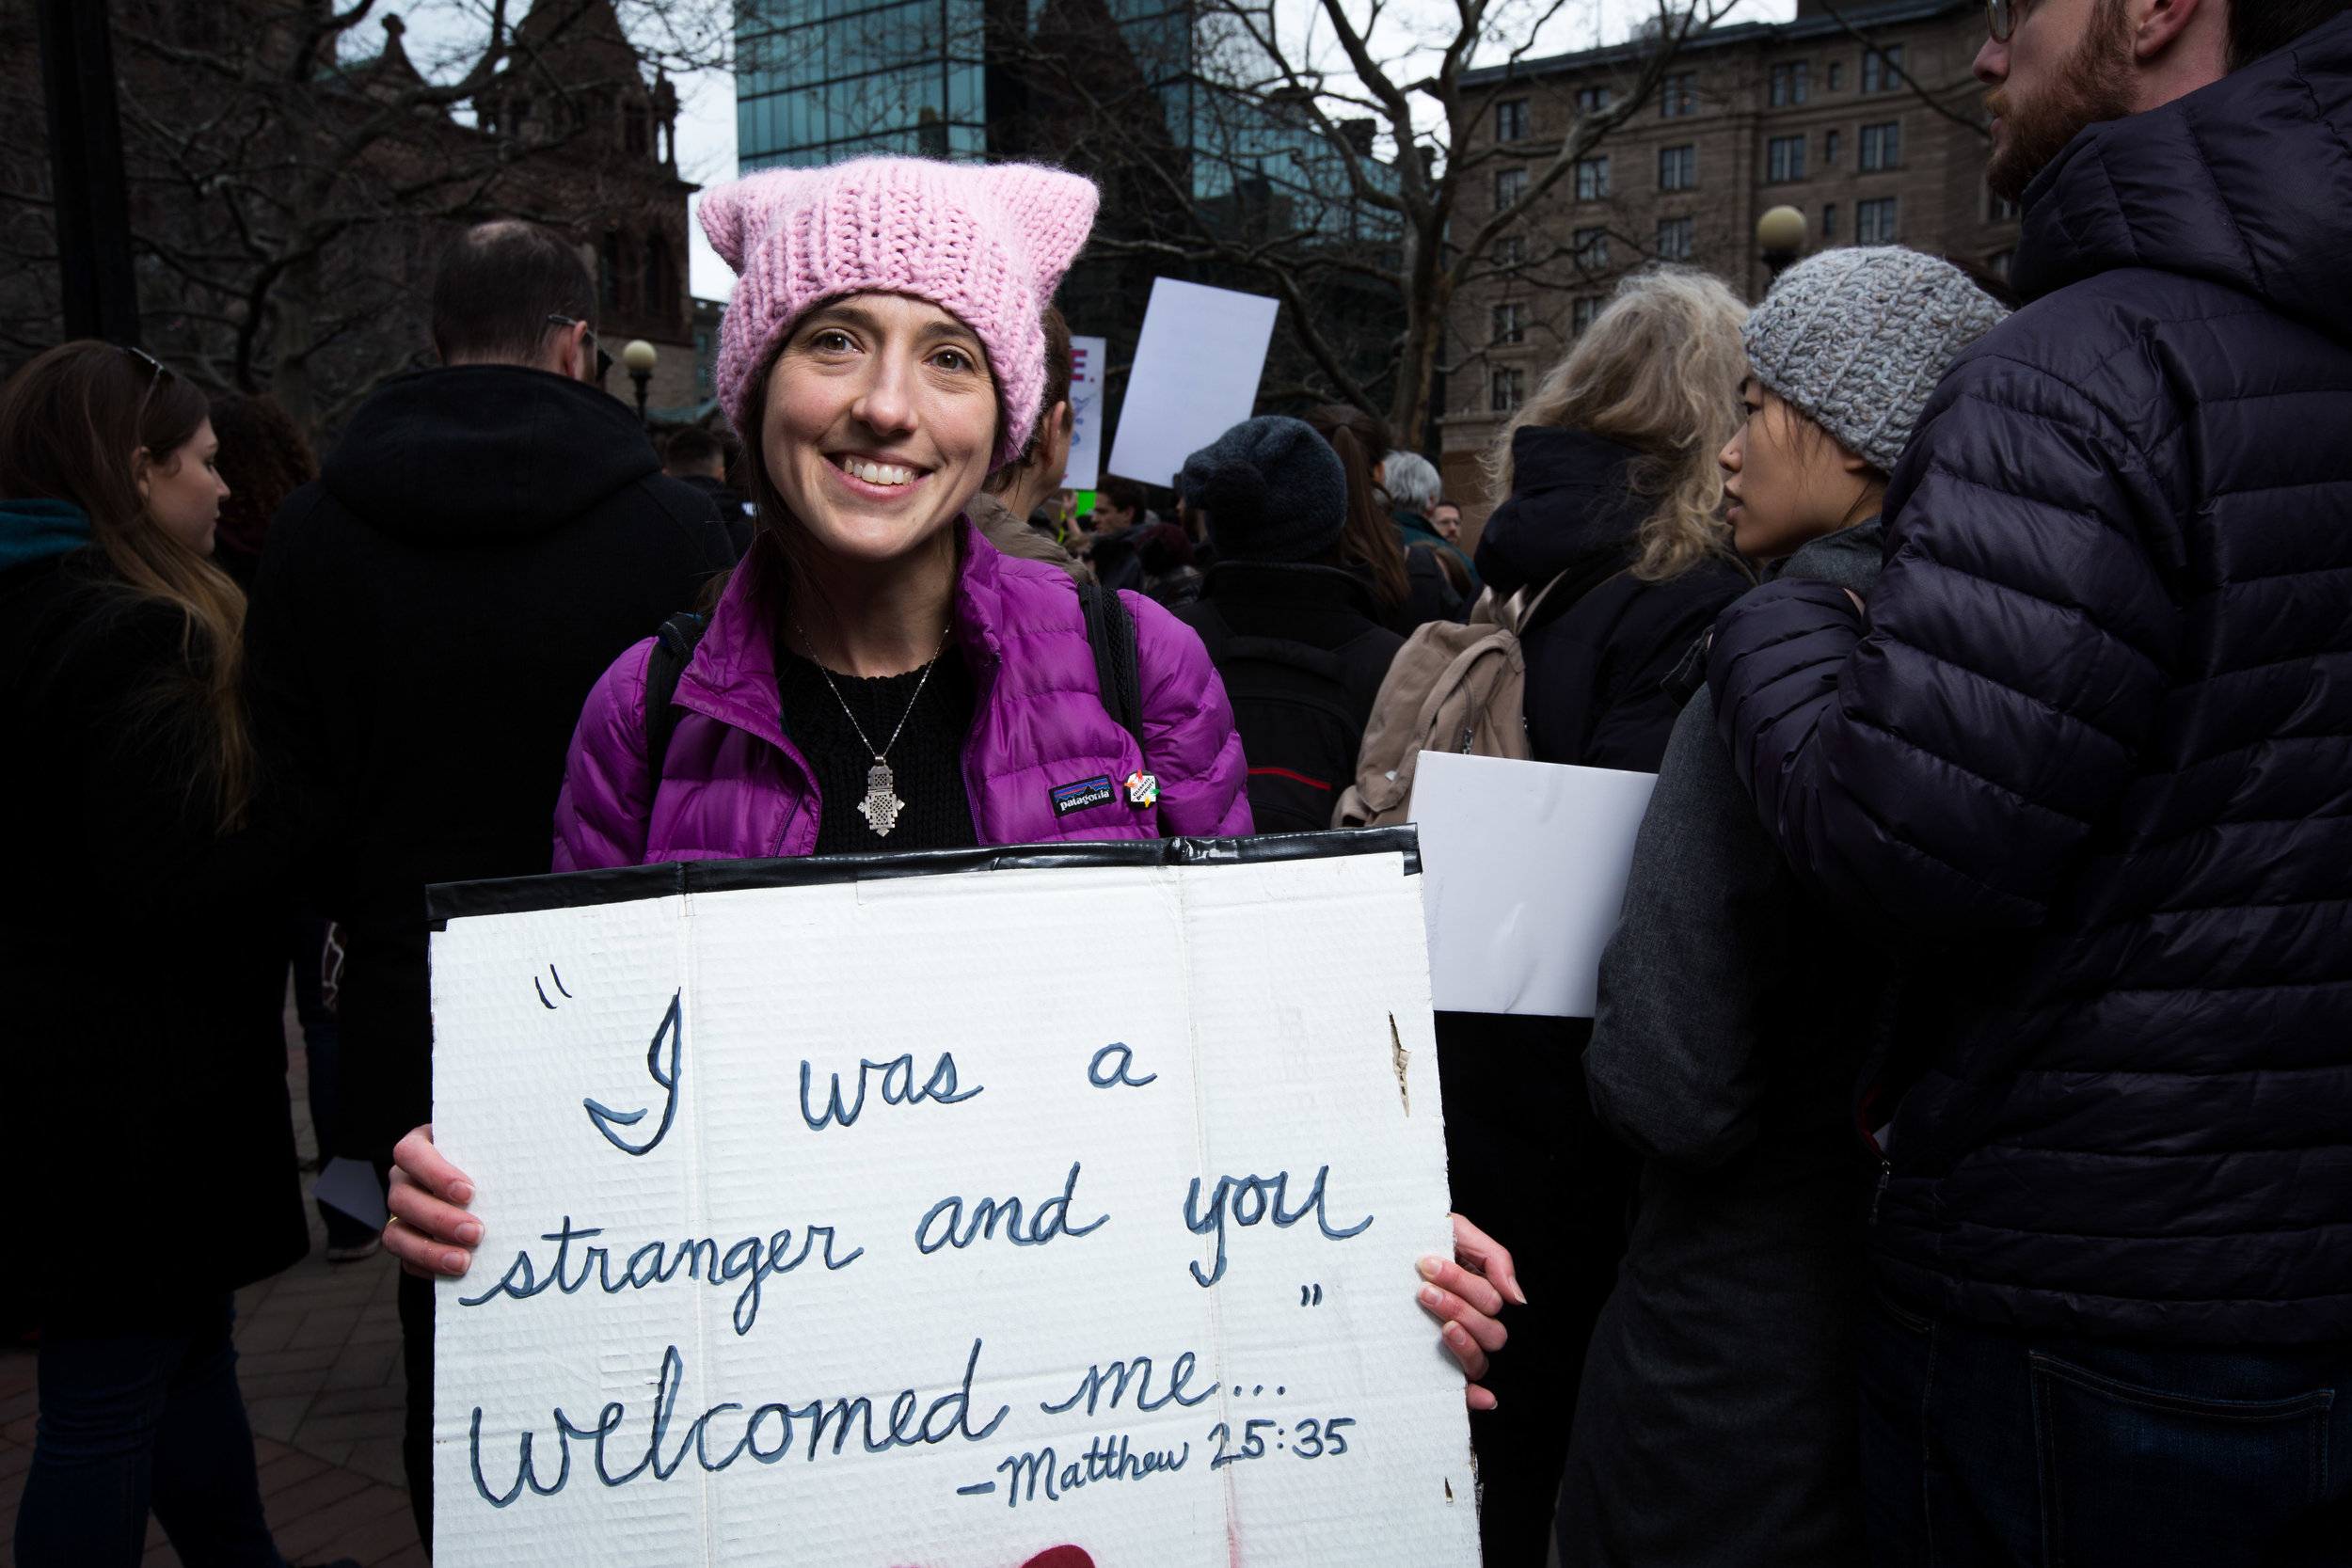 E.
patagonia
"I was a
stranger and you
welcomed me..."
-Matthew 25:35